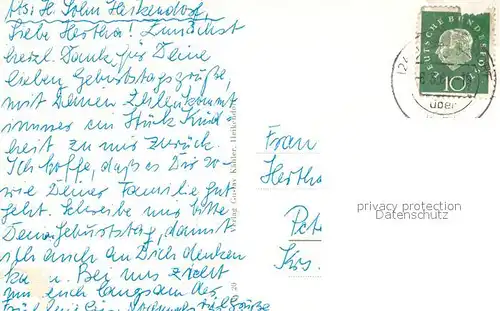 Abs: H. Sohn Heikendorf,
Liebe Hertha! Zunächst
herzl. Dank für Deine
lieben Geburtstagsgrüße,
mit Deinen Zeilen kommt
immer ein Stück Kind
heit zu mir zurück.
Ich hoffe, daß es Dir so-
wie Deiner Familie gut
geht. Schreibe mir bitte
Deinen Geburtstag, damit
ich auch an Dich denken
ka n. Bei uns zieht
nun auch langsam der
Frühling ein. Nochmals viel Grüße
Verlag Gustav Kähler, Heikendorf
20
Frau
Hertha
Pet
Krs.
DEUTSCHE BUNDESPOST
10
über
privacy protection
Datenschutz